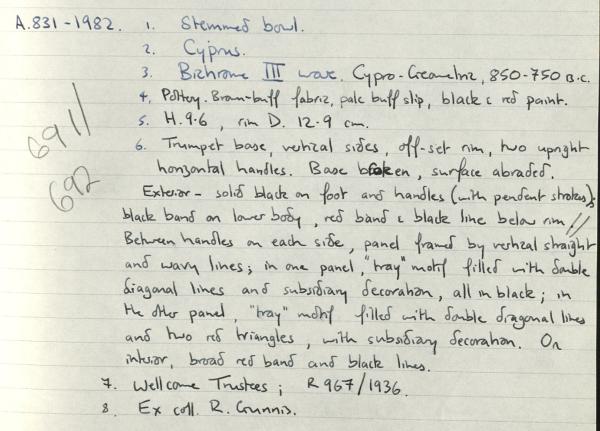 A.831-1982. 1. Stemmed bowl.
2. Cyprus.
3. Bichrome III ware. Cypro-Geometric, 850-750 B.C.
4. Pottery. Brown-buff fabric, pale buff slip, black & red paint.
5. H. 9.6, rim D. 12.9 cm.
6. Trumpet base, vertical sides, off-set rim, two upright
horizontal handles. Base broken, surface abraded.
Exterior - solid black on foot and handles (with pendent strokes);
black band on lower body, red band & black line below rim //
Between handles on each side, panel framed by vertical straight
and wavy lines; in one panel, "tray" motif filled with double
diagonal lines and subsidiary decoration, all in black; in
the other panel, "tray" motif filled with double diagonal lines
and two red triangles, with subsidiary decoration. On
interior, broad red band and black lines.
7. Wellcome Trustees; R 967/1936.
8. Ex coll. R. Gunnis.
691//
692